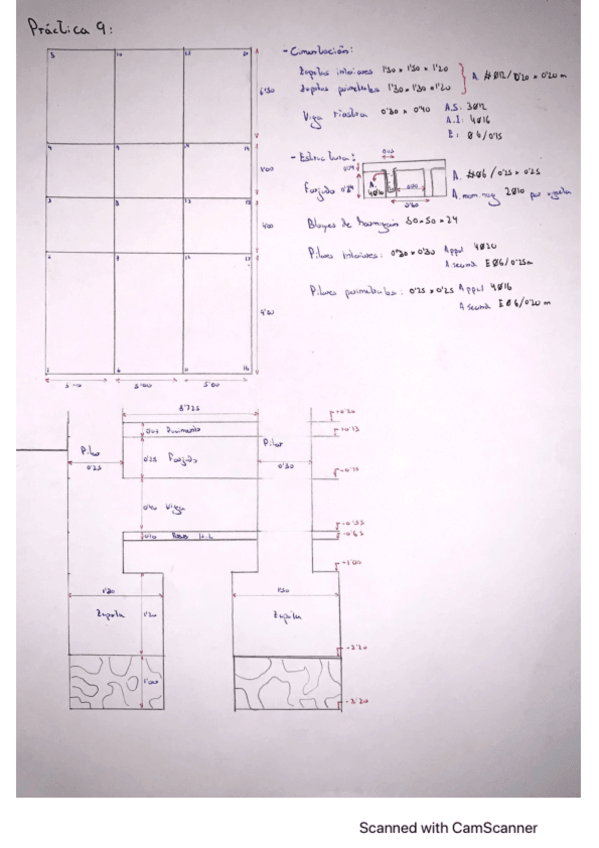 Práctica 9:
- Cimentación:
Zapatas interiores 1'50 x 1'50 x 1'20
Zapatas perimetrales 1'30 x 1'30 x 1'20
A. #Ø12/0'20 x 0'20 m
Viga riostra 0'30 x 0'40
A.S: 3Ø12
A.I: 4Ø16
E: Ø6/0'15
- Estructura:
Forjado
A. #Ø6/0'25 x 0'25
A. mom. neg 2Ø10 por vigueta
0'60
Bloques de hormigón 50x50x24
Pilares interiores: 0'30 x 0'30 A ppal 4Ø20
A secund EØ6/0'25m
Pilares perimetrales: 0'25 x 0'25 A ppal 4Ø16
A secund EØ6/0'20 m
4'00
5'00 5'00
3'725
Pavimento
Pilar
Pilar
0'25
0'25 Forjado
0'30
0'40 Viga
-1'00
1'30
1'50
Zapata
1'20
Zapata
-2'20
1'00
-3'20
Scanned with CamScanner